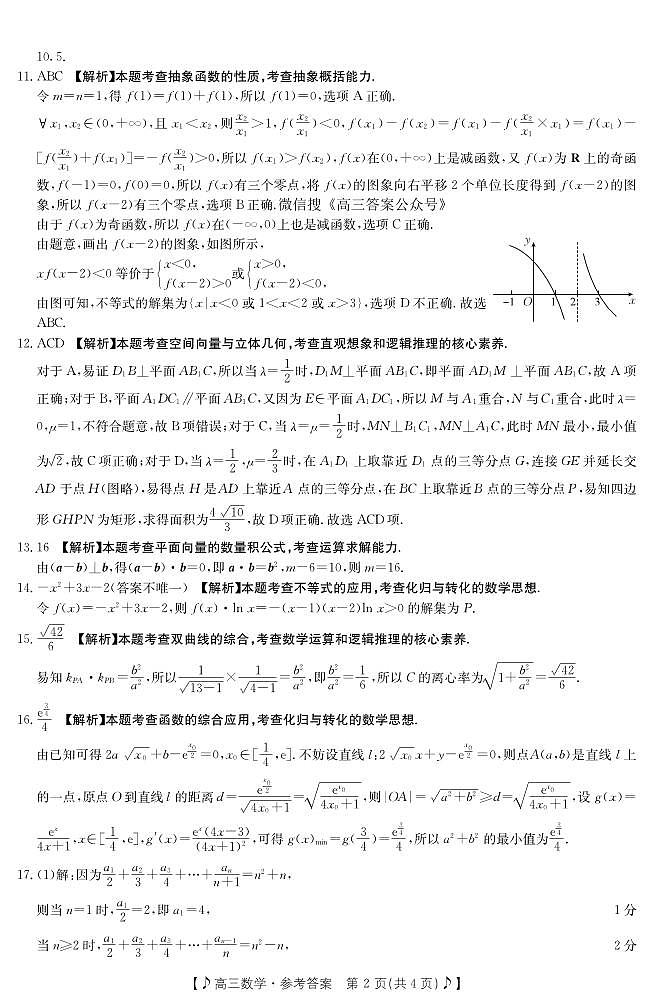 10.5.
11. ABC 【解析】本题考查抽象函数的性质,考查抽象概括能力.
令 m=n=1,得 f(1)=f(1)+f(1),所以 f(1)=0,选项 A 正确.
∀x₁,x₂∈(0,+∞),且 x₁<x₂,则 x₂/x₁>1,f(x₂/x₁)<0,f(x₁)-f(x₂)=f(x₁)-f(x₂/x₁×x₁)=f(x₁)-
[f(x₂/x₁)+f(x₁)]=-f(x₂/x₁)>0,所以 f(x₁)>f(x₂),f(x)在(0,+∞)上是减函数,又 f(x)为 R 上的奇函
数,f(-1)=0,f(0)=0,所以 f(x)有三个零点,将 f(x)的图象向右平移 2 个单位长度得到 f(x-2)的图
象,所以 f(x-2)有三个零点,选项 B 正确.微信搜《高三答案公众号》
由于 f(x)为奇函数,所以 f(x)在(-∞,0)上也是减函数,选项 C 正确.
由题意,画出 f(x-2)的图象,如图所示,
xf(x-2)<0 等价于{x<0, f(x-2)>0 或{x>0, f(x-2)<0,
由图可知,不等式的解集为{x|x<0 或 1<x<2 或 x>3},选项 D 不正确.故选
ABC.
y
-1 O 1 2 3 x
12. ACD 【解析】本题考查空间向量与立体几何,考查直观想象和逻辑推理的核心素养.
对于 A,易证 D₁B⊥平面 AB₁C,所以当 λ=1/2 时,D₁M⊥平面 AB₁C,即平面 AD₁M⊥平面 AB₁C,故 A 项
正确;对于 B,平面 A₁DC₁∥平面 AB₁C,又因为 E∈平面 A₁DC₁,所以 M 与 A₁重合,N 与 C₁重合,此时 λ=
0,μ=1,不符合题意,故 B 项错误;对于 C,当 λ=μ=1/2 时,MN⊥B₁C₁,MN⊥A₁C,此时 MN 最小,最小值
为√2,故 C 项正确;对于 D,当 λ=1/2,μ=2/3 时,在 A₁D₁ 上取靠近 D₁ 点的三等分点 G,连接 GE 并延长交
AD 于点 H(图略),易得点 H 是 AD 上靠近 A 点的三等分点,在 BC 上取靠近 B 点的三等分点 P,易知四边
形 GHPN 为矩形,求得面积为 4√10/3,故 D 项正确.故选 ACD 项.
13. 16 【解析】本题考查平面向量的数量积公式,考查运算求解能力.
由(a-b)⊥b,得(a-b)·b=0,即 a·b=b²,m-6=10,则 m=16.
14. -x²+3x-2(答案不唯一) 【解析】本题考查不等式的应用,考查化归与转化的数学思想.
令 f(x)=-x²+3x-2,则 f(x)·ln x=-(x-1)(x-2)ln x>0 的解集为 P.
15. √42/6 【解析】本题考查双曲线的综合,考查数学运算和逻辑推理的核心素养.
易知 k_PA·k_PB=b²/a²,所以 1/√(13-1)×1/√(4-1)=b²/a²,即 b²/a²=1/6,所以 C 的离心率为√(1+b²/a²)=√42/6.
16. e^(3/4)/4 【解析】本题考查函数的综合应用,考查化归与转化的数学思想.
由已知可得 2a√x₀+b-e^(x₀/2)=0,x₀∈[1/4,e].不妨设直线 l:2√x₀x+y-e^(x₀/2)=0,则点A(a,b)是直线 l 上
的一点,原点 O 到直线 l 的距离 d=e^(x₀/2)/√(4x₀+1)=√(e^x₀/(4x₀+1)),则|OA|=√(a²+b²)≥d=√(e^x₀/(4x₀+1)),设 g(x)=
e^x/(4x+1),x∈[1/4,e],g′(x)=e^x(4x-3)/(4x+1)²,可得 g(x)_min=g(3/4)=e^(3/4)/4,所以 a²+b² 的最小值为 e^(3/4)/4.
17. (1)解:因为 a₁/2+a₂/3+a₃/4+⋯+aₙ/(n+1)=n²+n,
则当 n=1 时,a₁/2=2,即 a₁=4, 1 分
当 n≥2 时,a₁/2+a₂/3+a₃/4+⋯+aₙ₋₁/n=n²-n, 2 分
【♪高三数学·参考答案 第 2 页(共 4 页)♪】